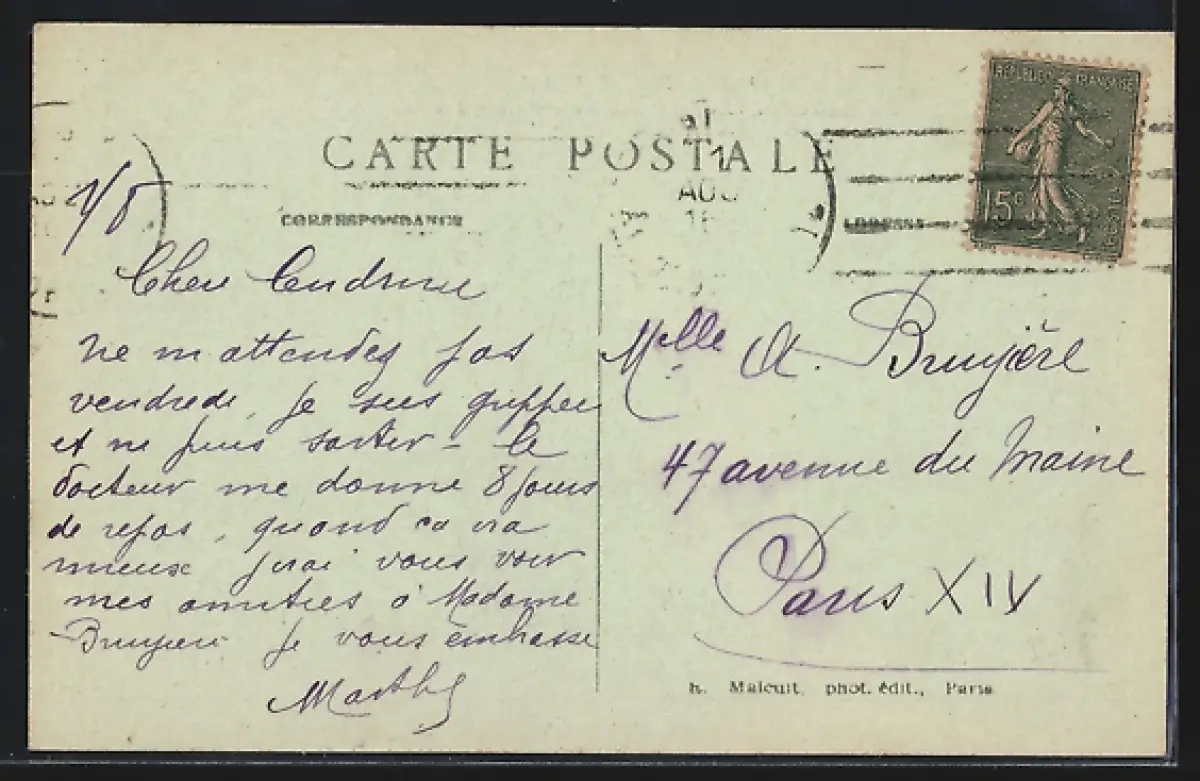 CARTE POSTALE
CORRESPONDANCE
ADRESSE
REPUBLIQUE FRANÇAISE
15c
21
AOU
1/8
Cher
ne m'attendez pas
vendredi, je suis grippée
et ne puis sortir - le
docteur me donne 8 jours
de repos, quand ça ira
mieux j'irai vous voir
mes amitiés à Madame
Bruyère je vous embrasse
Marthe
Melle A. Bruyère
47 avenue du Maine
Paris XIV
h. Malcuit, phot. édit., Paris